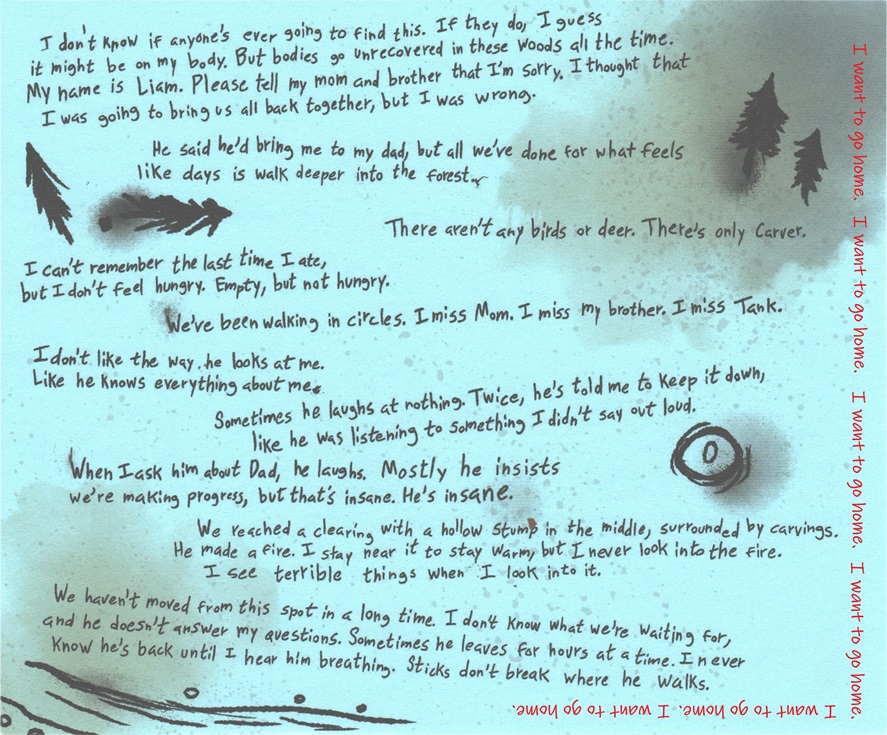 I don't know if anyone's ever going to find this. If they do, I guess
it might be on my body. But bodies go unrecovered in these woods all the time.
My name is Liam. Please tell my mom and brother that I'm sorry. I thought that
I was going to bring us all back together, but I was wrong.
He said he'd bring me to my dad, but all we've done for what feels
like days is walk deeper into the forest.
There aren't any birds or deer. There's only Carver.
I can't remember the last time I ate,
but I don't feel hungry. Empty, but not hungry.
We've been walking in circles. I miss Mom. I miss my brother. I miss Tank.
I don't like the way he looks at me.
Like he knows everything about me.
Sometimes he laughs at nothing. Twice, he's told me to keep it down,
like he was listening to something I didn't say out loud.
When I ask him about Dad, he laughs. Mostly he insists
we're making progress, but that's insane. He's insane.
We reached a clearing with a hollow stump in the middle, surrounded by carvings.
He made a fire. I stay near it to stay warm, but I never look into the fire.
I see terrible things when I look into it.
We haven't moved from this spot in a long time. I don't know what we're waiting for,
and he doesn't answer my questions. Sometimes he leaves for hours at a time. I never
know he's back until I hear him breathing. Sticks don't break where he walks.
I want to go home. I want to go home. I want to go home. I want to go home.
I want to go home. I want to go home.